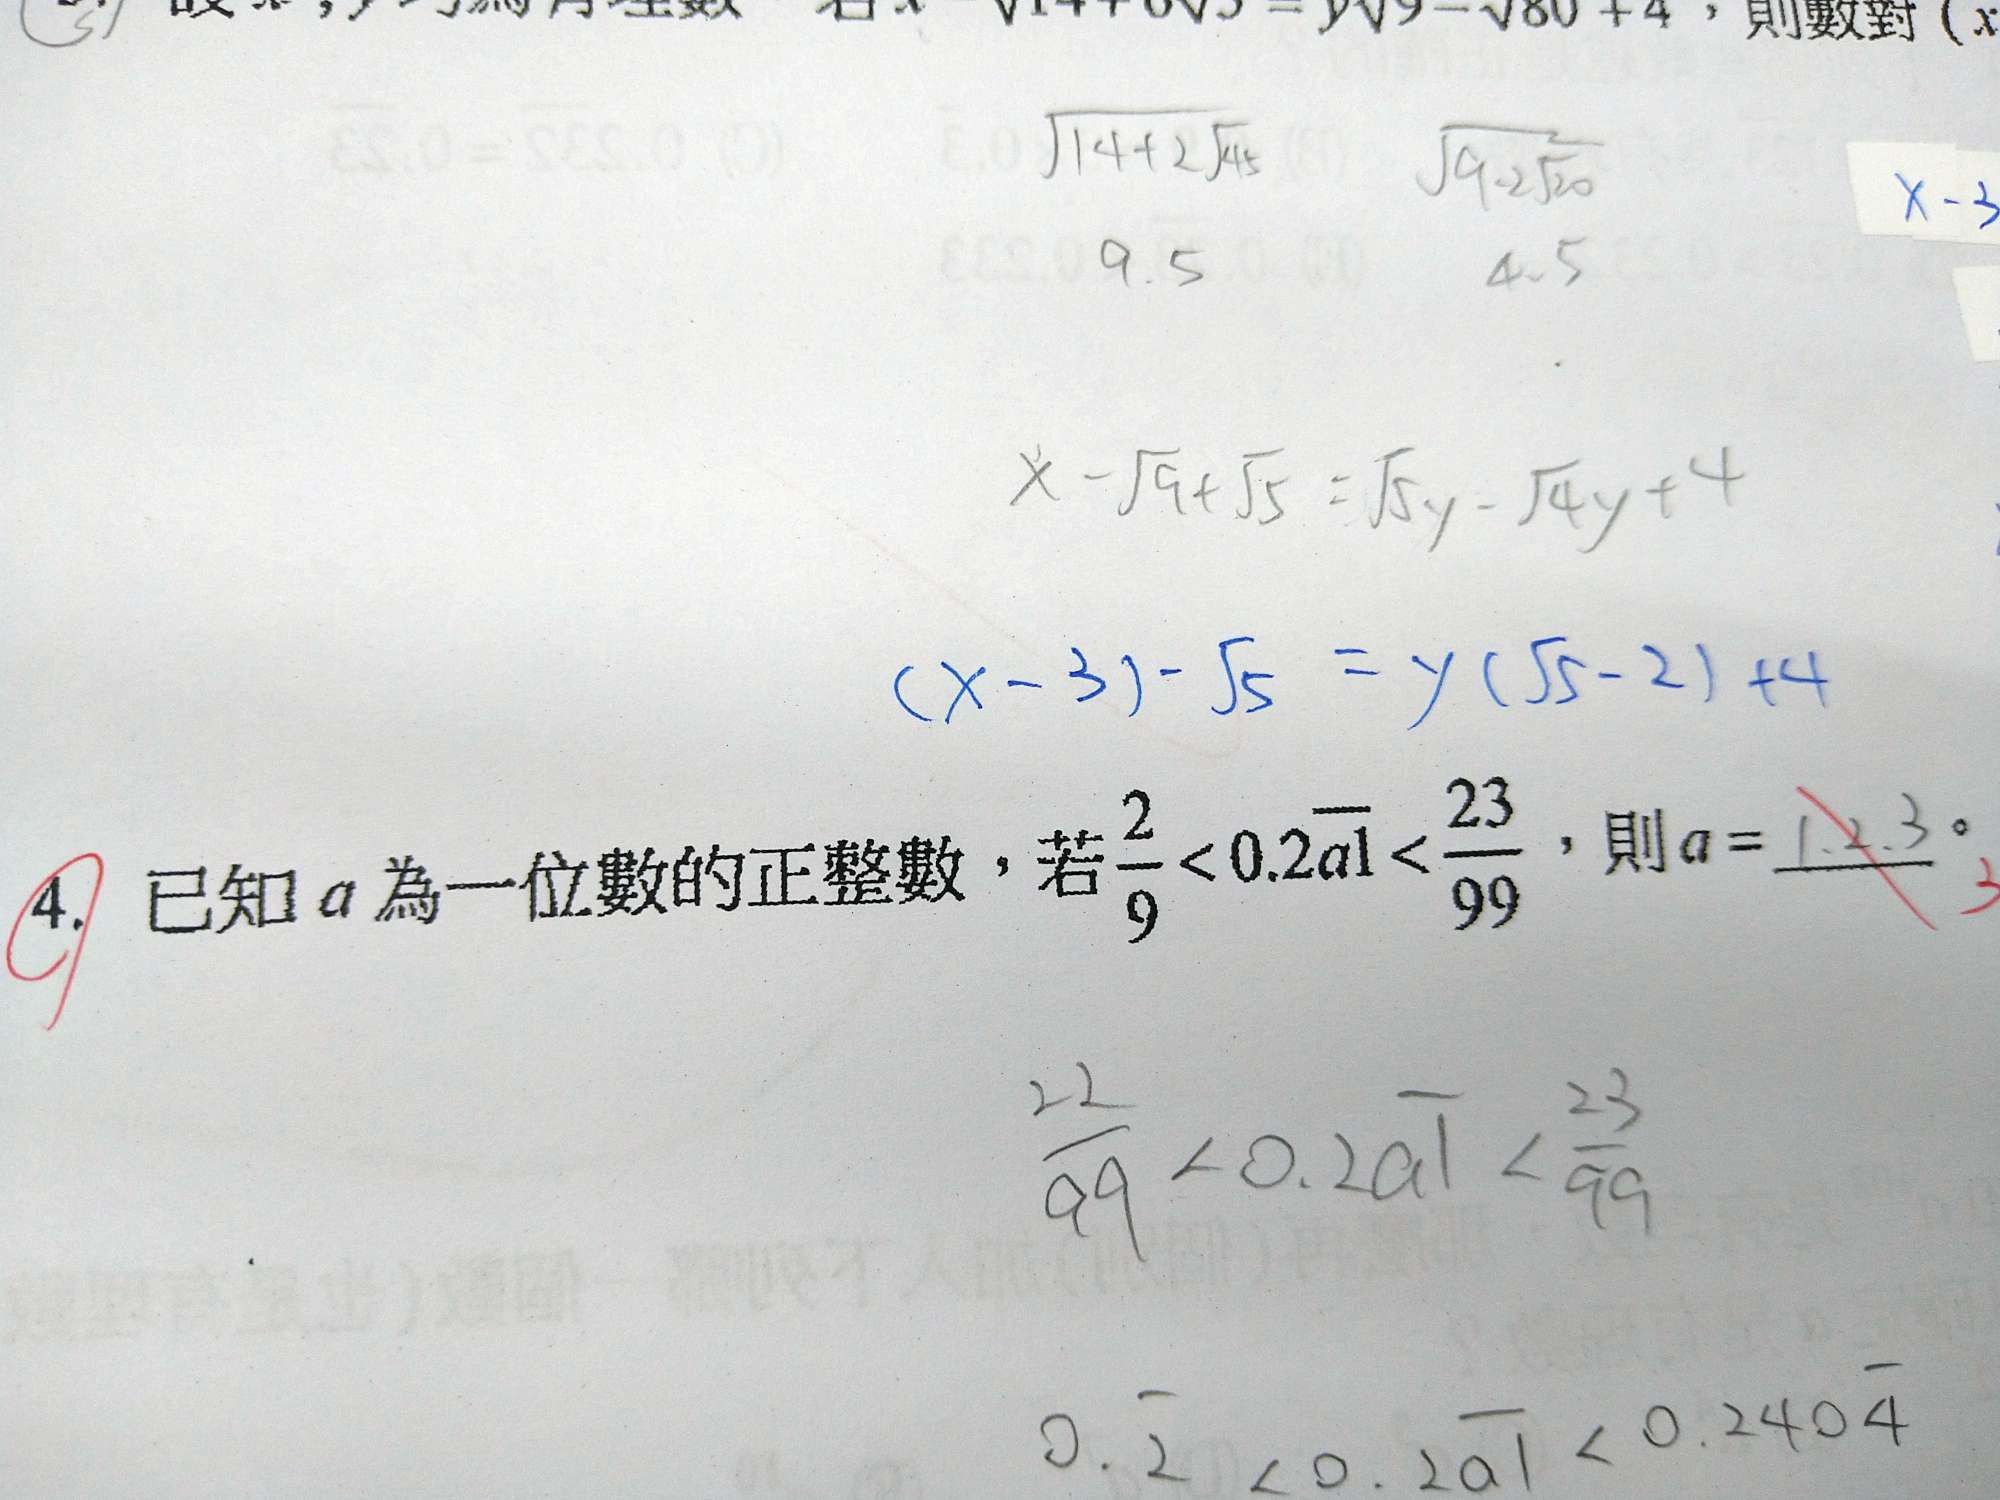 設 x , y 均為有理數,若 x − √14+6√5 = y√9−√80 + 4,則數對 (x
√14+2√45 √9-2√20
x - 3
9.5 4.5
x - √9 + √5 = √5y - √4y + 4
(x - 3) - √5 = y (√5 - 2) + 4
4. 已知 a 為一位數的正整數,若 2/9 < 0.2a̅1̅ < 23/99,則 a = 1.2.3。
3
22/99 < 0.2a1̅ < 23/99
0.2̅ < 0.2a̅1̅ < 0.2404̅